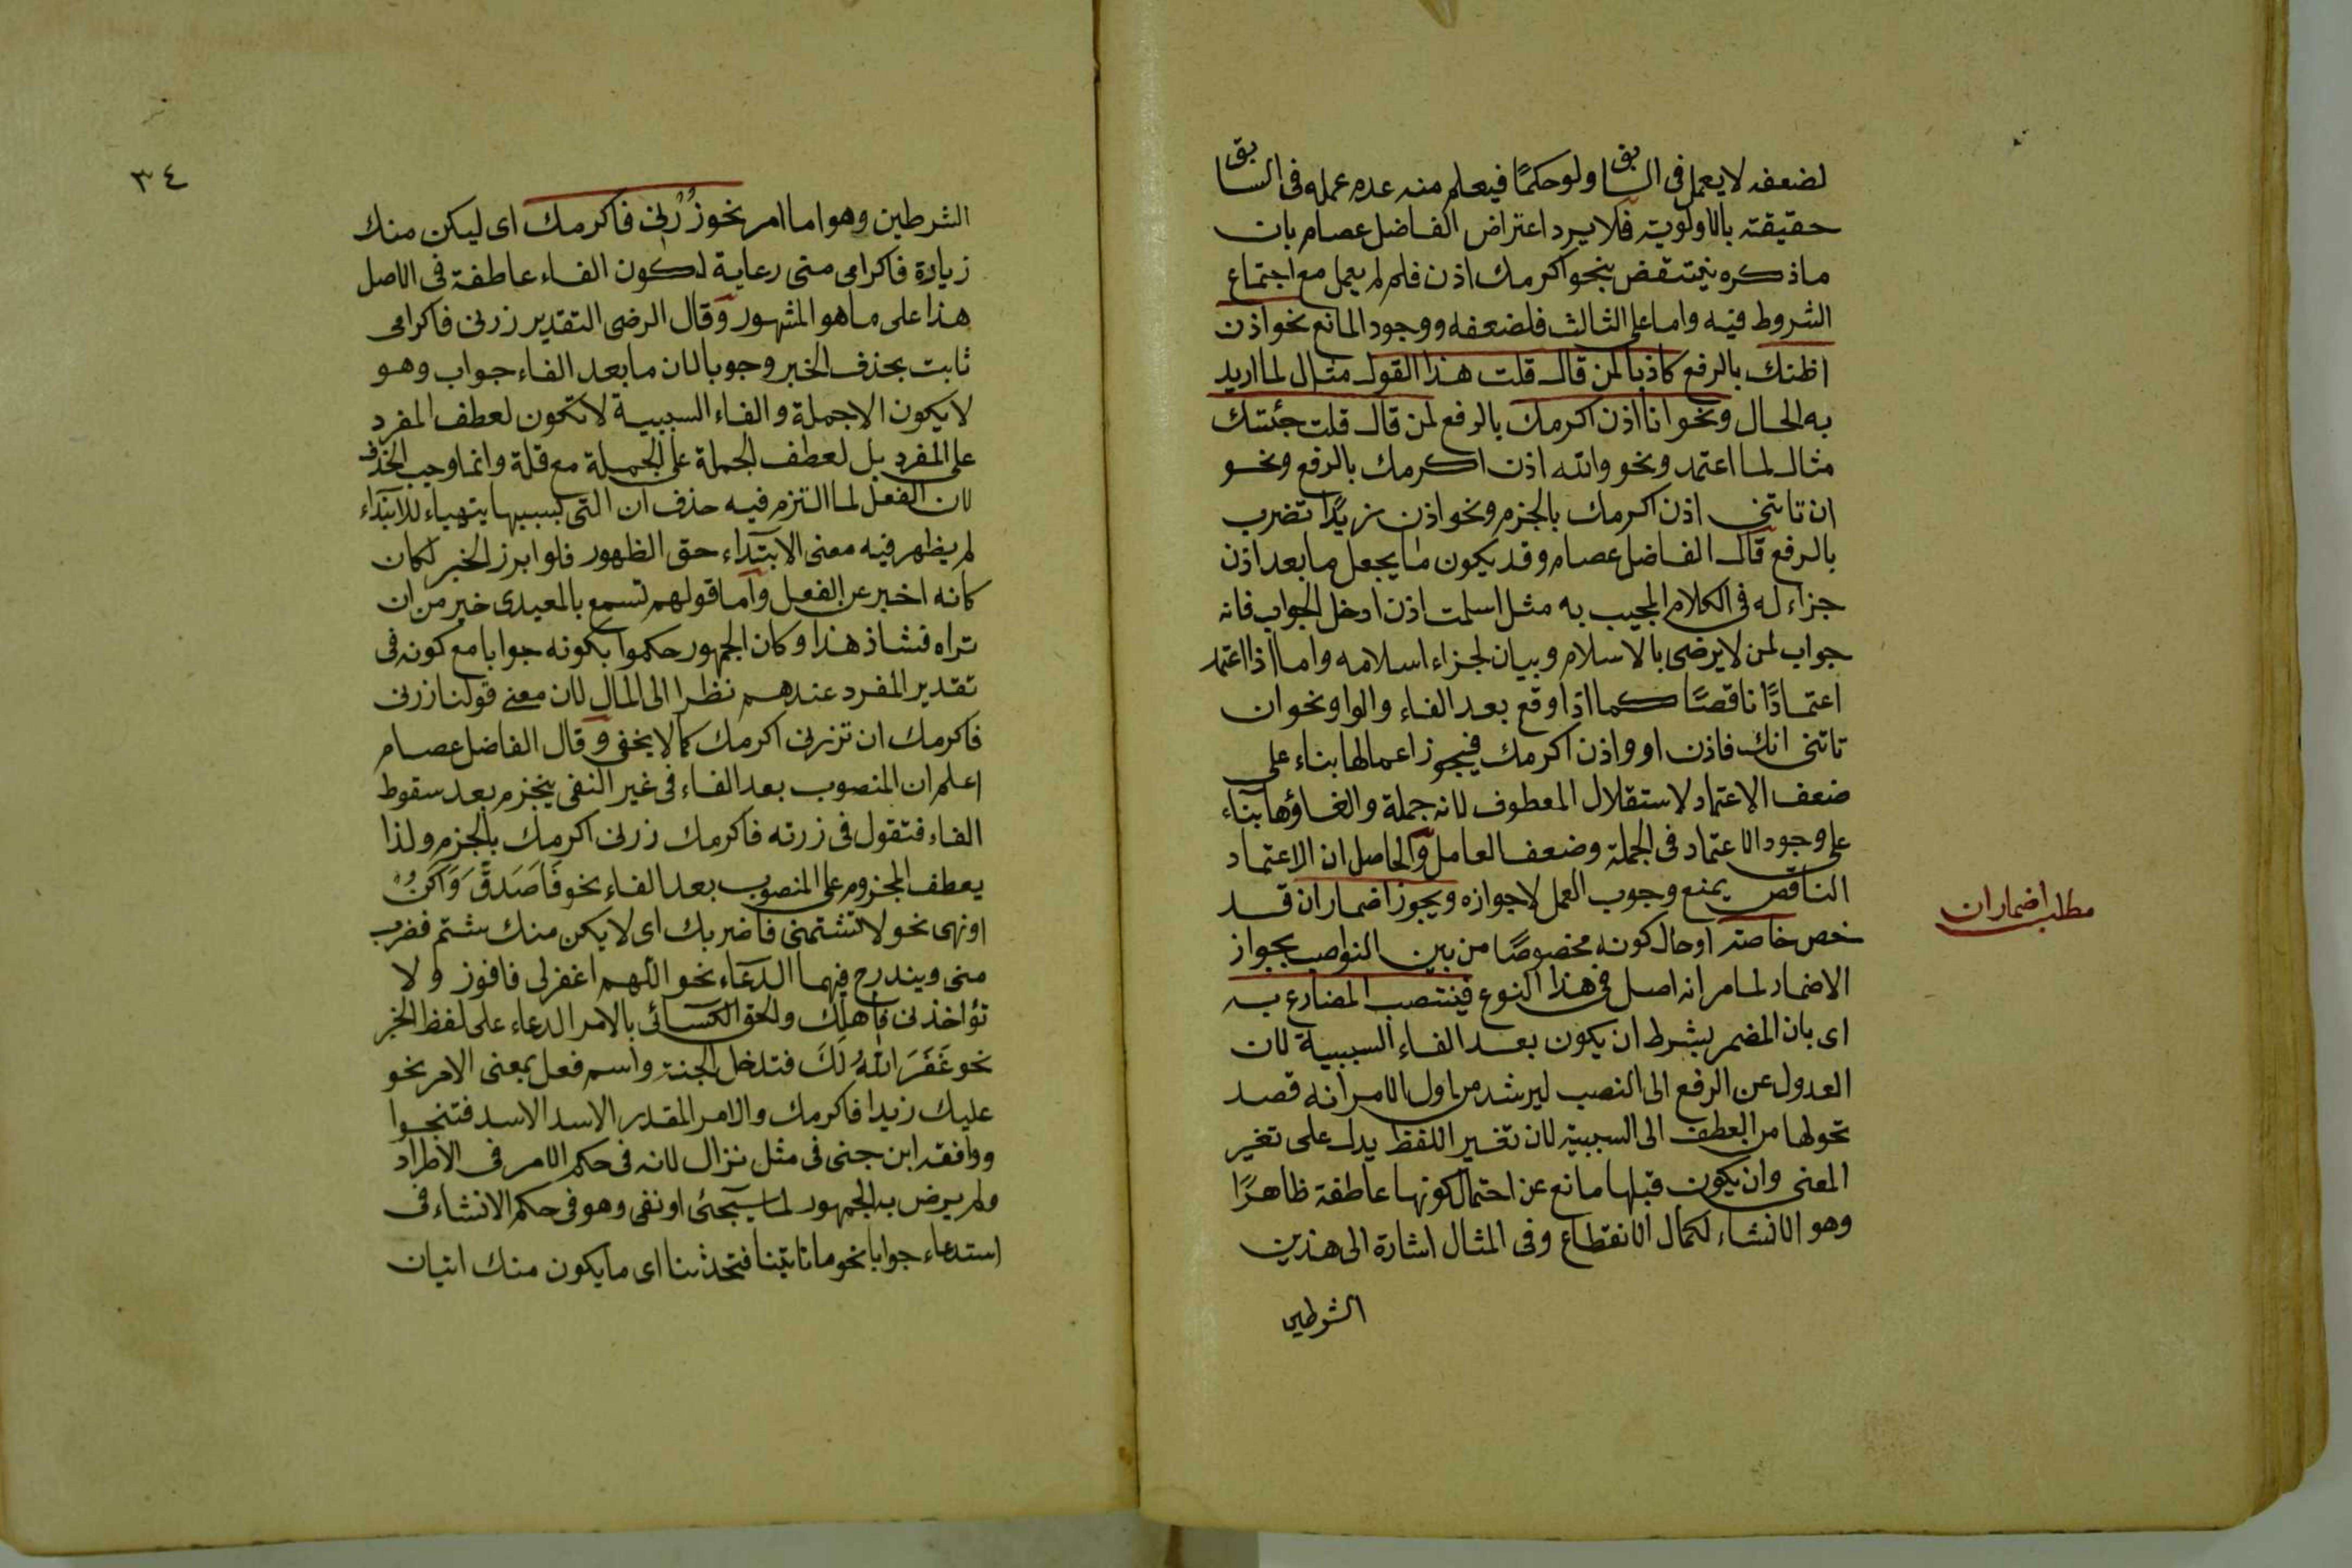 لضعفه لا يعمل فى السابق ولو حكمًا فيعلم منه عدم عمله فى السابق
حقيقته بالاولوية فلا يرد اعتراض الفاضل عصام بان
ماذكره ينتقض بنحو اكرمك اذن فلم لم يعمل مع اجتماع
الشروط فيه واما على الثالث فلضعفه ووجود المانع نحو اذن
اظنك بالرفع كاذبا لمن قال قلت هذا القول مثال لما اريد
به الحال ونحو انا اذن اكرمك بالرفع لمن قال قلت جئتك
مثال لما اعتمد ونحو والله اذن اكرمك بالرفع ونحو
ان تاتنى اذن اكرمك بالجزم ونحو اذن زيدًا تضرب
بالرفع قال الفاضل عصام وقد يكون ما يجعل ما بعد اذن
جزاء له فى الكلام المجيب به مثل اسلمت اذن ادخل الجواب فانه
جواب لمن لا يرضى بالاسلام وبيان لجزاء اسلامه واما اذا اعتمد
اعتمادًا ناقصًا كما اذا وقع بعد الفاء والواو نحو ان
تاتنى انك فاذن او واذن اكرمك فيجوز اعمالها بناء على
ضعف الاعتماد لاستقلال المعطوف لانه جملة والغاؤها بناء
على وجود الاعتماد فى الجملة وضعف العامل والحاصل ان الاعتماد
الناقص يمنع وجوب العمل لا جوازه ويجوز اضمار ان قد
مطلب اضمار ان
خص خاصة او حال كونه مخصوصًا من بين النواصب بجواز
الاضمار لما مر انه اصل فى هذا النوع فينتصب المضارع به
اى بان المضمر بشرط ان يكون بعد الفاء السببية لان
العدول عن الرفع الى النصب ليرشد من اول الامر انه قصد
تحولها من العطف الى السببية لان تغير اللفظ يدل على تغير
المعنى وان يكون قبلها مانع عن احتمال كونها عاطفة ظاهرًا
وهو الانشاء لكمال الانقطاع وفى المثال اشارة الى هذين
الشرطين
٣٤
الشرطين وهو اما امر نحو زُرْنِى فاكرمك اى ليكن منك
زيارة فاكرامى منى رعاية لكون الفاء عاطفة فى الاصل
هذا على ما هو المشهور وقال الرضى التقدير زرنى فاكرامى
ثابت بحذف الخبر وجوبا لان ما بعد الفاء جواب وهو
لا يكون الا جملة والفاء السببية لا تكون لعطف المفرد
على المفرد بل لعطف الجملة على الجملة مع قلة وانما وجب الحذف
لان الفعل لما التزم فيه حذف ان التى بسببها يتهياء للابتداء
لم يظهر فيه معنى الابتداء حق الظهور فلو ابرز الخبر لكان
كانه اخبر عن الفعل واما قولهم تسمع بالمعيدى خير من ان
تراه فشاذ هذا وكان الجمهور حكموا بكونه جوابا مع كونه فى
تقدير المفرد عندهم نظرا الى المال لان معنى قولنا زرنى
فاكرمك ان تزرنى اكرمك كما لا يخفى وقال الفاضل عصام
اعلم ان المنصوب بعد الفاء فى غير النفى ينجزم بعد سقوط
الفاء فتقول فى زرته فاكرمك زرنى اكرمك بالجزم ولذا
يعطف المجزوم على المنصوب بعد الفاء نحو فَاَصَدَّقَ وَاَكُنْ
او نهى نحو لا تشتمنى فاضربك اى لا يكن منك شتم فضرب
منى ويندرج فيهما الدعاء نحو اللهم اغفر لى فافوز ولا
تؤاخذنى فاهلك والحق الكسائى بالامر الدعاء على لفظ الخبر
نحو غَفَرَ اللهُ لَكَ فتدخل الجنة واسم فعل بمعنى الامر نحو
عليك زيدا فاكرمك والامر المقدر الاسد الاسد فتنجوا
ووافقه ابن جنى فى مثل نزال لانه فى حكم الامر فى الاطراد
ولم يرض به الجمهور لما سيجئ او نفى وهو فى حكم الانشاء فى
استدعاء جوابا نحو ما تاتينا فتحدثنا اى ما يكون منك اتيان